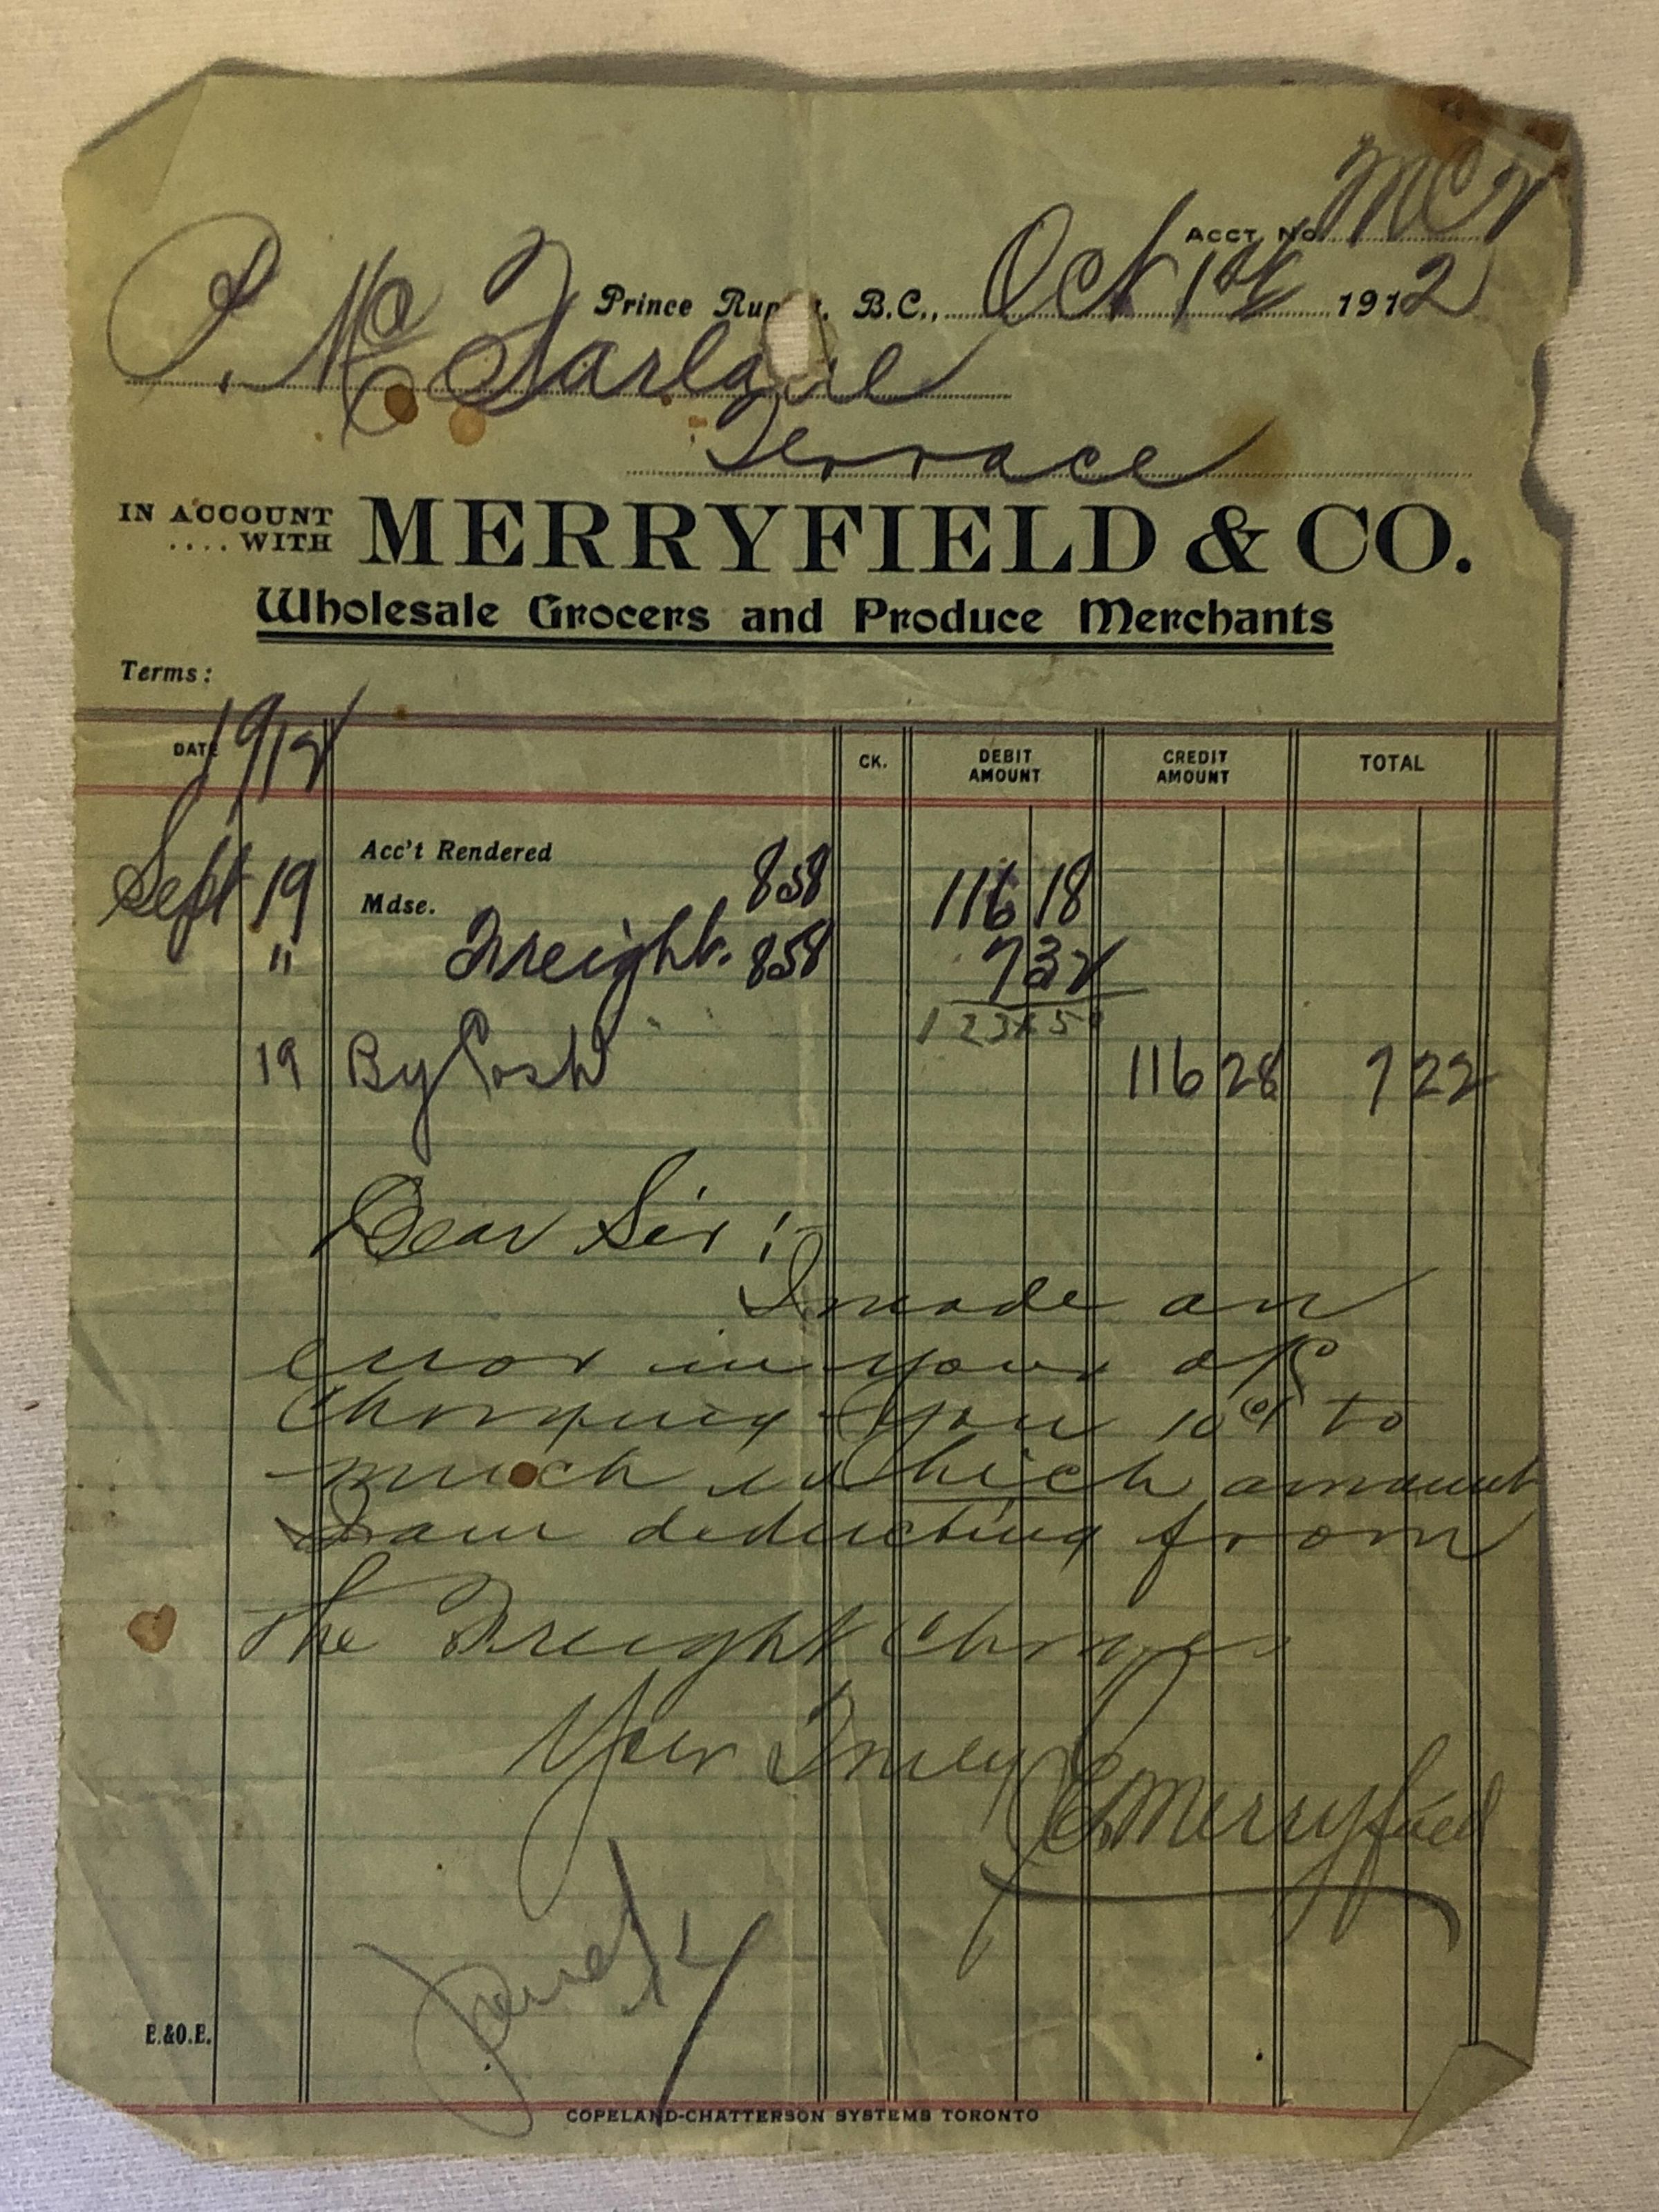 ACCT. No. McF
Prince Rup t. B.C., Oct 1st 1912
P. McFarlane
Terrace
IN ACCOUNT
.... WITH MERRYFIELD & CO.
Wholesale Grocers and Produce Merchants
Terms:
DATE 1912 CK. DEBIT AMOUNT CREDIT AMOUNT TOTAL
Acc't Rendered
Sept 19 Mdse. 858 116 18
" Freight. 858 7 32
123 50
19 By Cash 116 28 7 22
Dear Sir :-
I made an
error in your a/c
charging you 10¢ to
much which amount
I am deducting from
the Freight Charges
Your Truly
Merryfield
E.&O.E.
COPELAND-CHATTERSON SYSTEMS TORONTO